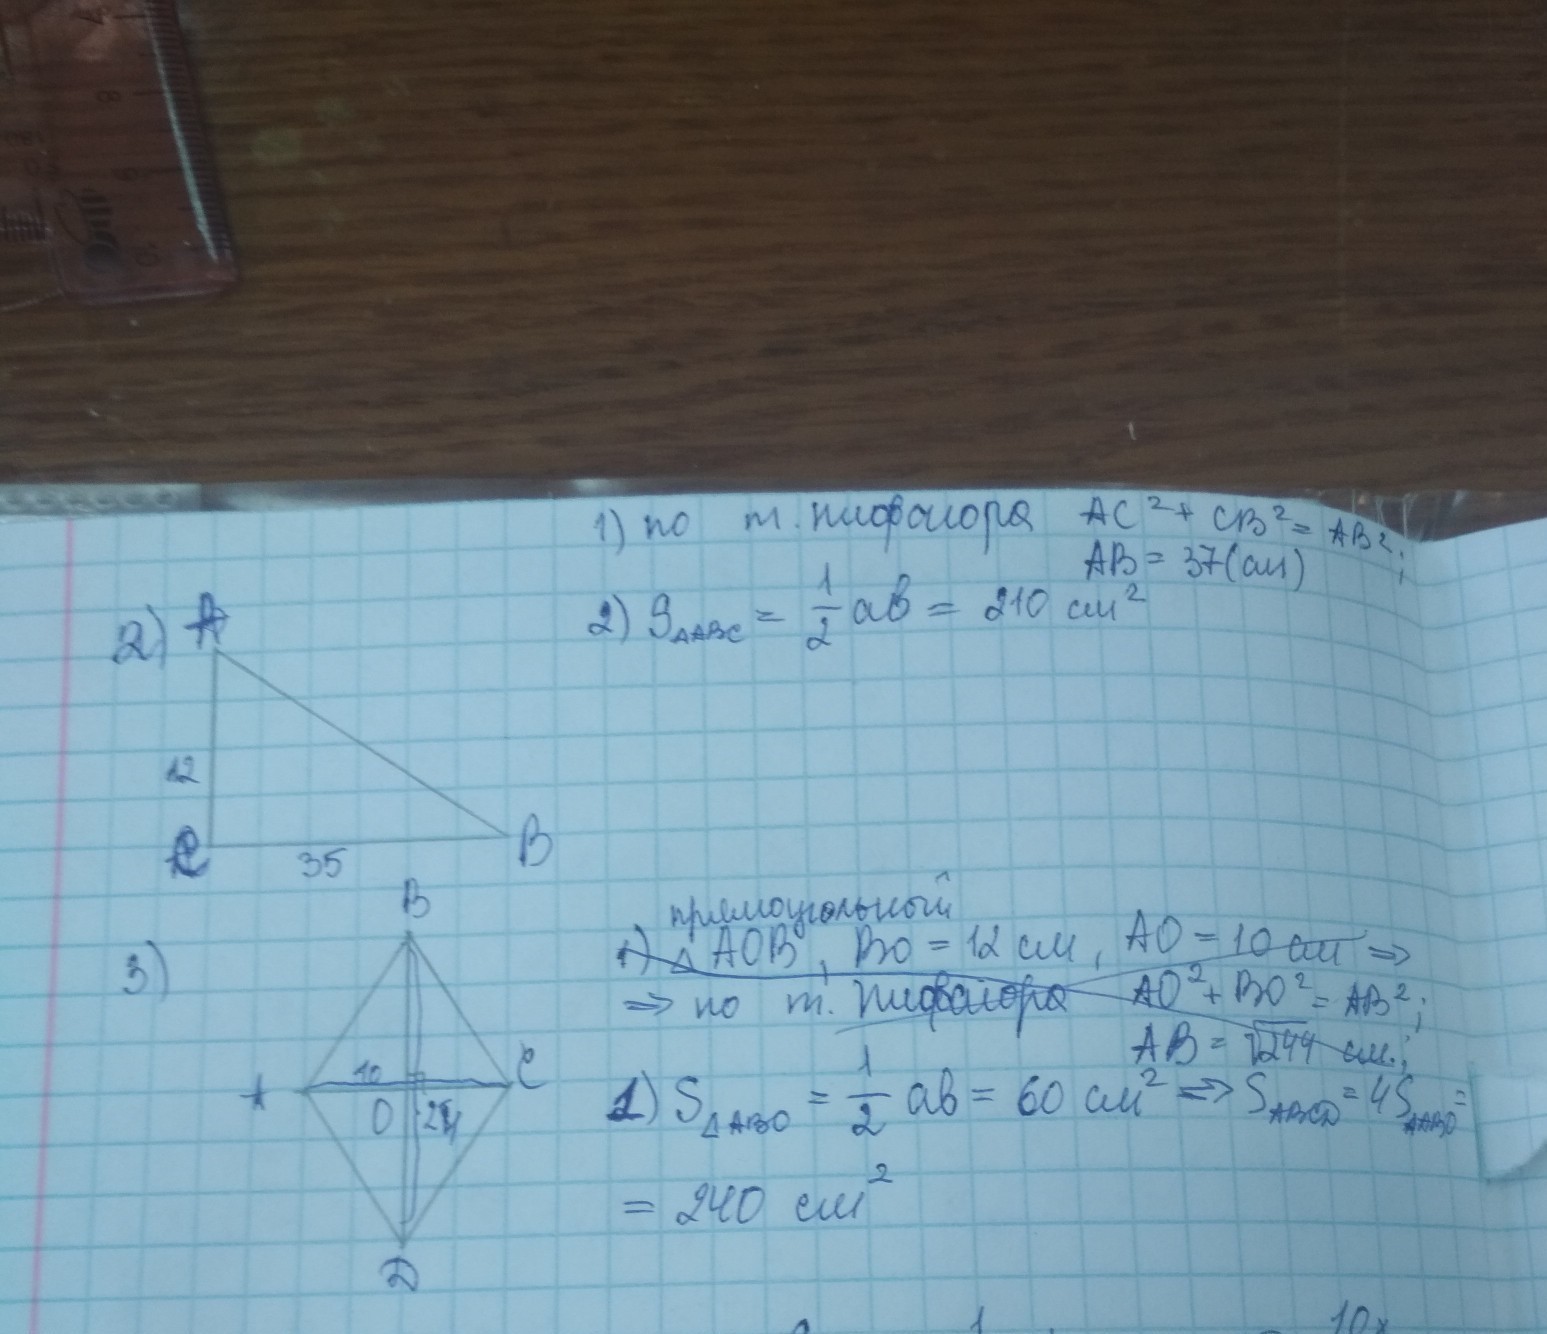 1) по т. Пифагора AC² + CB² = AB²;
AB = 37(см)
2) S△ABC = 1/2 ab = 210 см²
2) A
12
C 35 B
B
3)
A 10 C
O 24
D
прямоугольный
1) △ AOB, BO = 12 см, AO = 10 см =>
=> по т. Пифагора AO² + BO² = AB²;
AB = √244 см.;
1) S△ABO = 1/2 ab = 60 см² => SABCD = 4S△ABO =
= 240 см²
1 10x